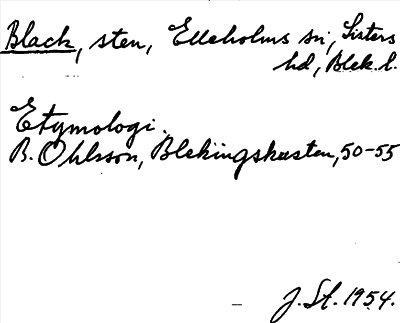 Black, sten, Elleholms sn, Listers
hd, Blek. l.
Etymologi.
B. Ohlsson, Blekingskusten, 50-55
J. St. 1954.